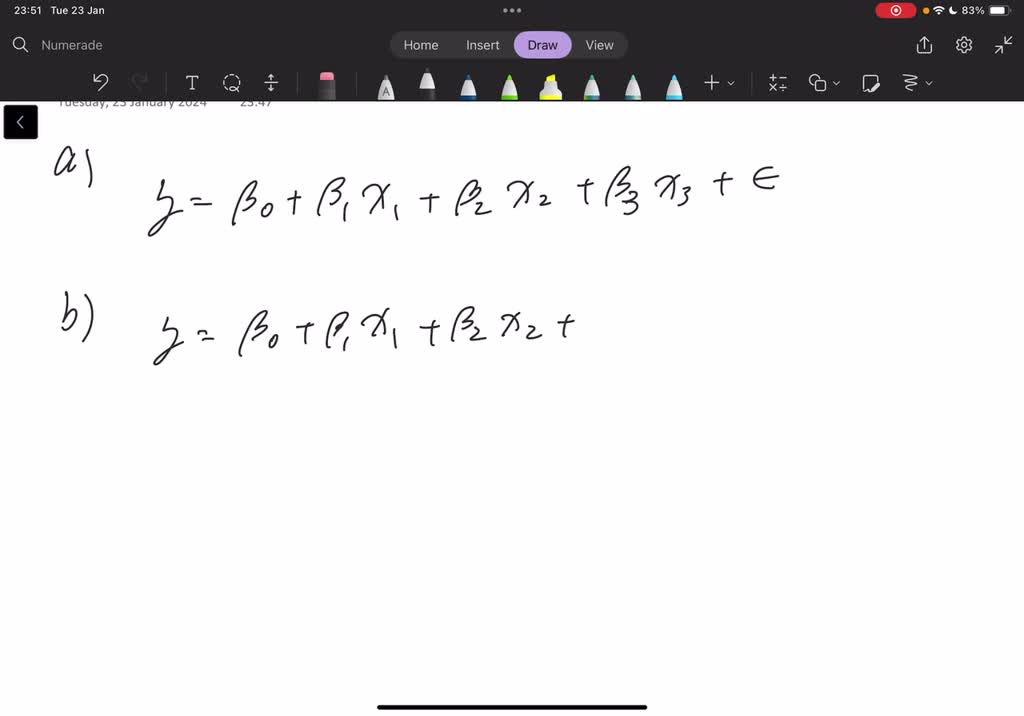 23:51 Tue 23 Jan 83%
Numerade Home Insert Draw View
T A
Tuesday, 23 January 2024 23:47
a) y = β₀ + β₁ x₁ + β₂ x₂ + β₃ x₃ + ∈
b) y = β₀ + β₁ x₁ + β₂ x₂ +